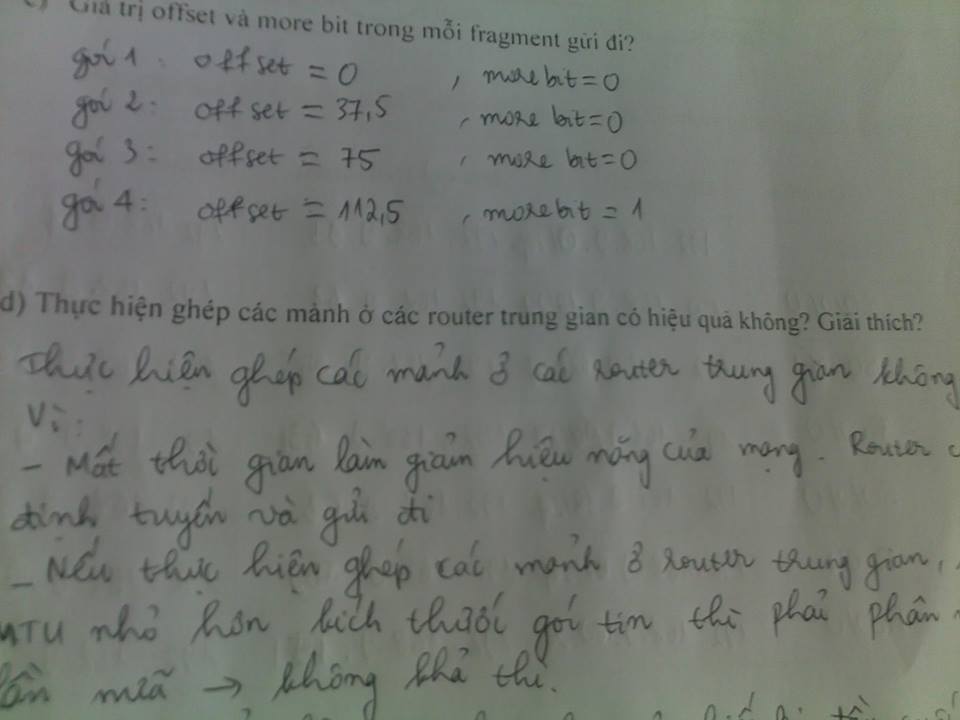 Giá trị offset và more bit trong mỗi fragment gửi đi?
gói 1: offset = 0 , more bit = 0
gói 2: offset = 37,5 , more bit = 0
gói 3: offset = 75 , more bit = 0
gói 4: offset = 112,5 , more bit = 1
d) Thực hiện ghép các mảnh ở các router trung gian có hiệu quả không? Giải thích?
Thực hiện ghép các mảnh ở các router trung gian không
Vì:
- Mất thời gian làm giảm hiệu năng của mạng. Router
định tuyến và gửi đi
- Nếu thực hiện ghép các mảnh ở router trung gian,
MTU nhỏ hơn kích thước gói tin thì phải phân
lần nữa → không khả thi.